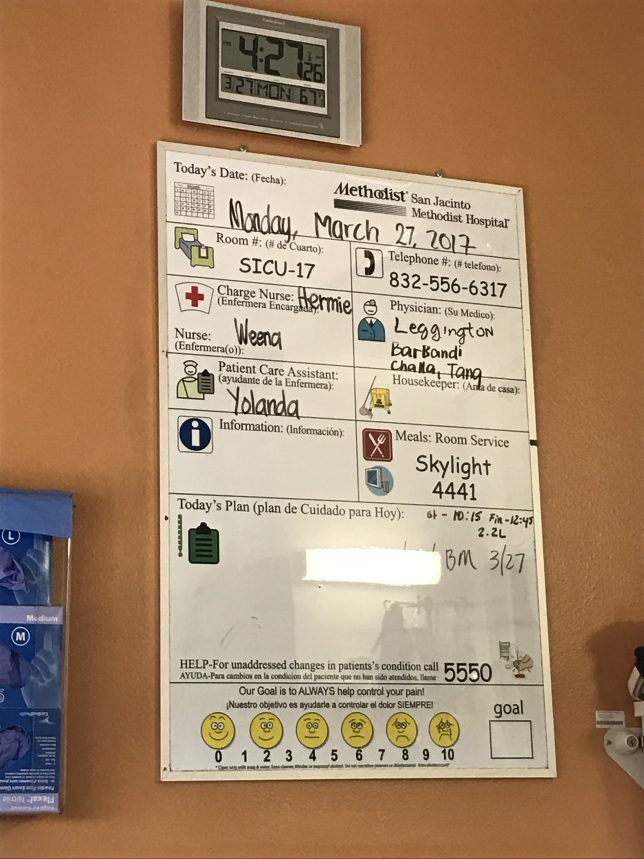 4:27 26
3/27 MON 67
Today's Date: (Fecha):
Methodist San Jacinto
Methodist Hospital
Monday, March 27, 2017
Room #: (# de Cuarto):
SICU-17
Telephone #: (# telefono):
832-556-6317
Charge Nurse: Hermie
(Enfermera Encargada):
Nurse: Weena
(Enfermera(o)):
Physician: (Su Medico):
Leggington
Barbandi
Challa, Tang
Patient Care Assistant:
(ayudante de la Enfermera):
Yolanda
Housekeeper: (Ama de casa):
Information: (Información):
Meals: Room Service
Skylight
4441
Today's Plan (plan de Cuidado para Hoy):
st - 10:15 Fin-12:45
2.2L
BM 3/27
HELP-For unaddressed changes in patients's condition call 5550
AYUDA-Para cambios en la condición del paciente que no han sido atendidos, llame
Our Goal is to ALWAYS help control your pain!
¡Nuestro objetivo es ayudarle a controlar el dolor SIEMPRE!
goal
0 1 2 3 4 5 6 7 8 9 10
L
Medium
M
Flexal Nitrile